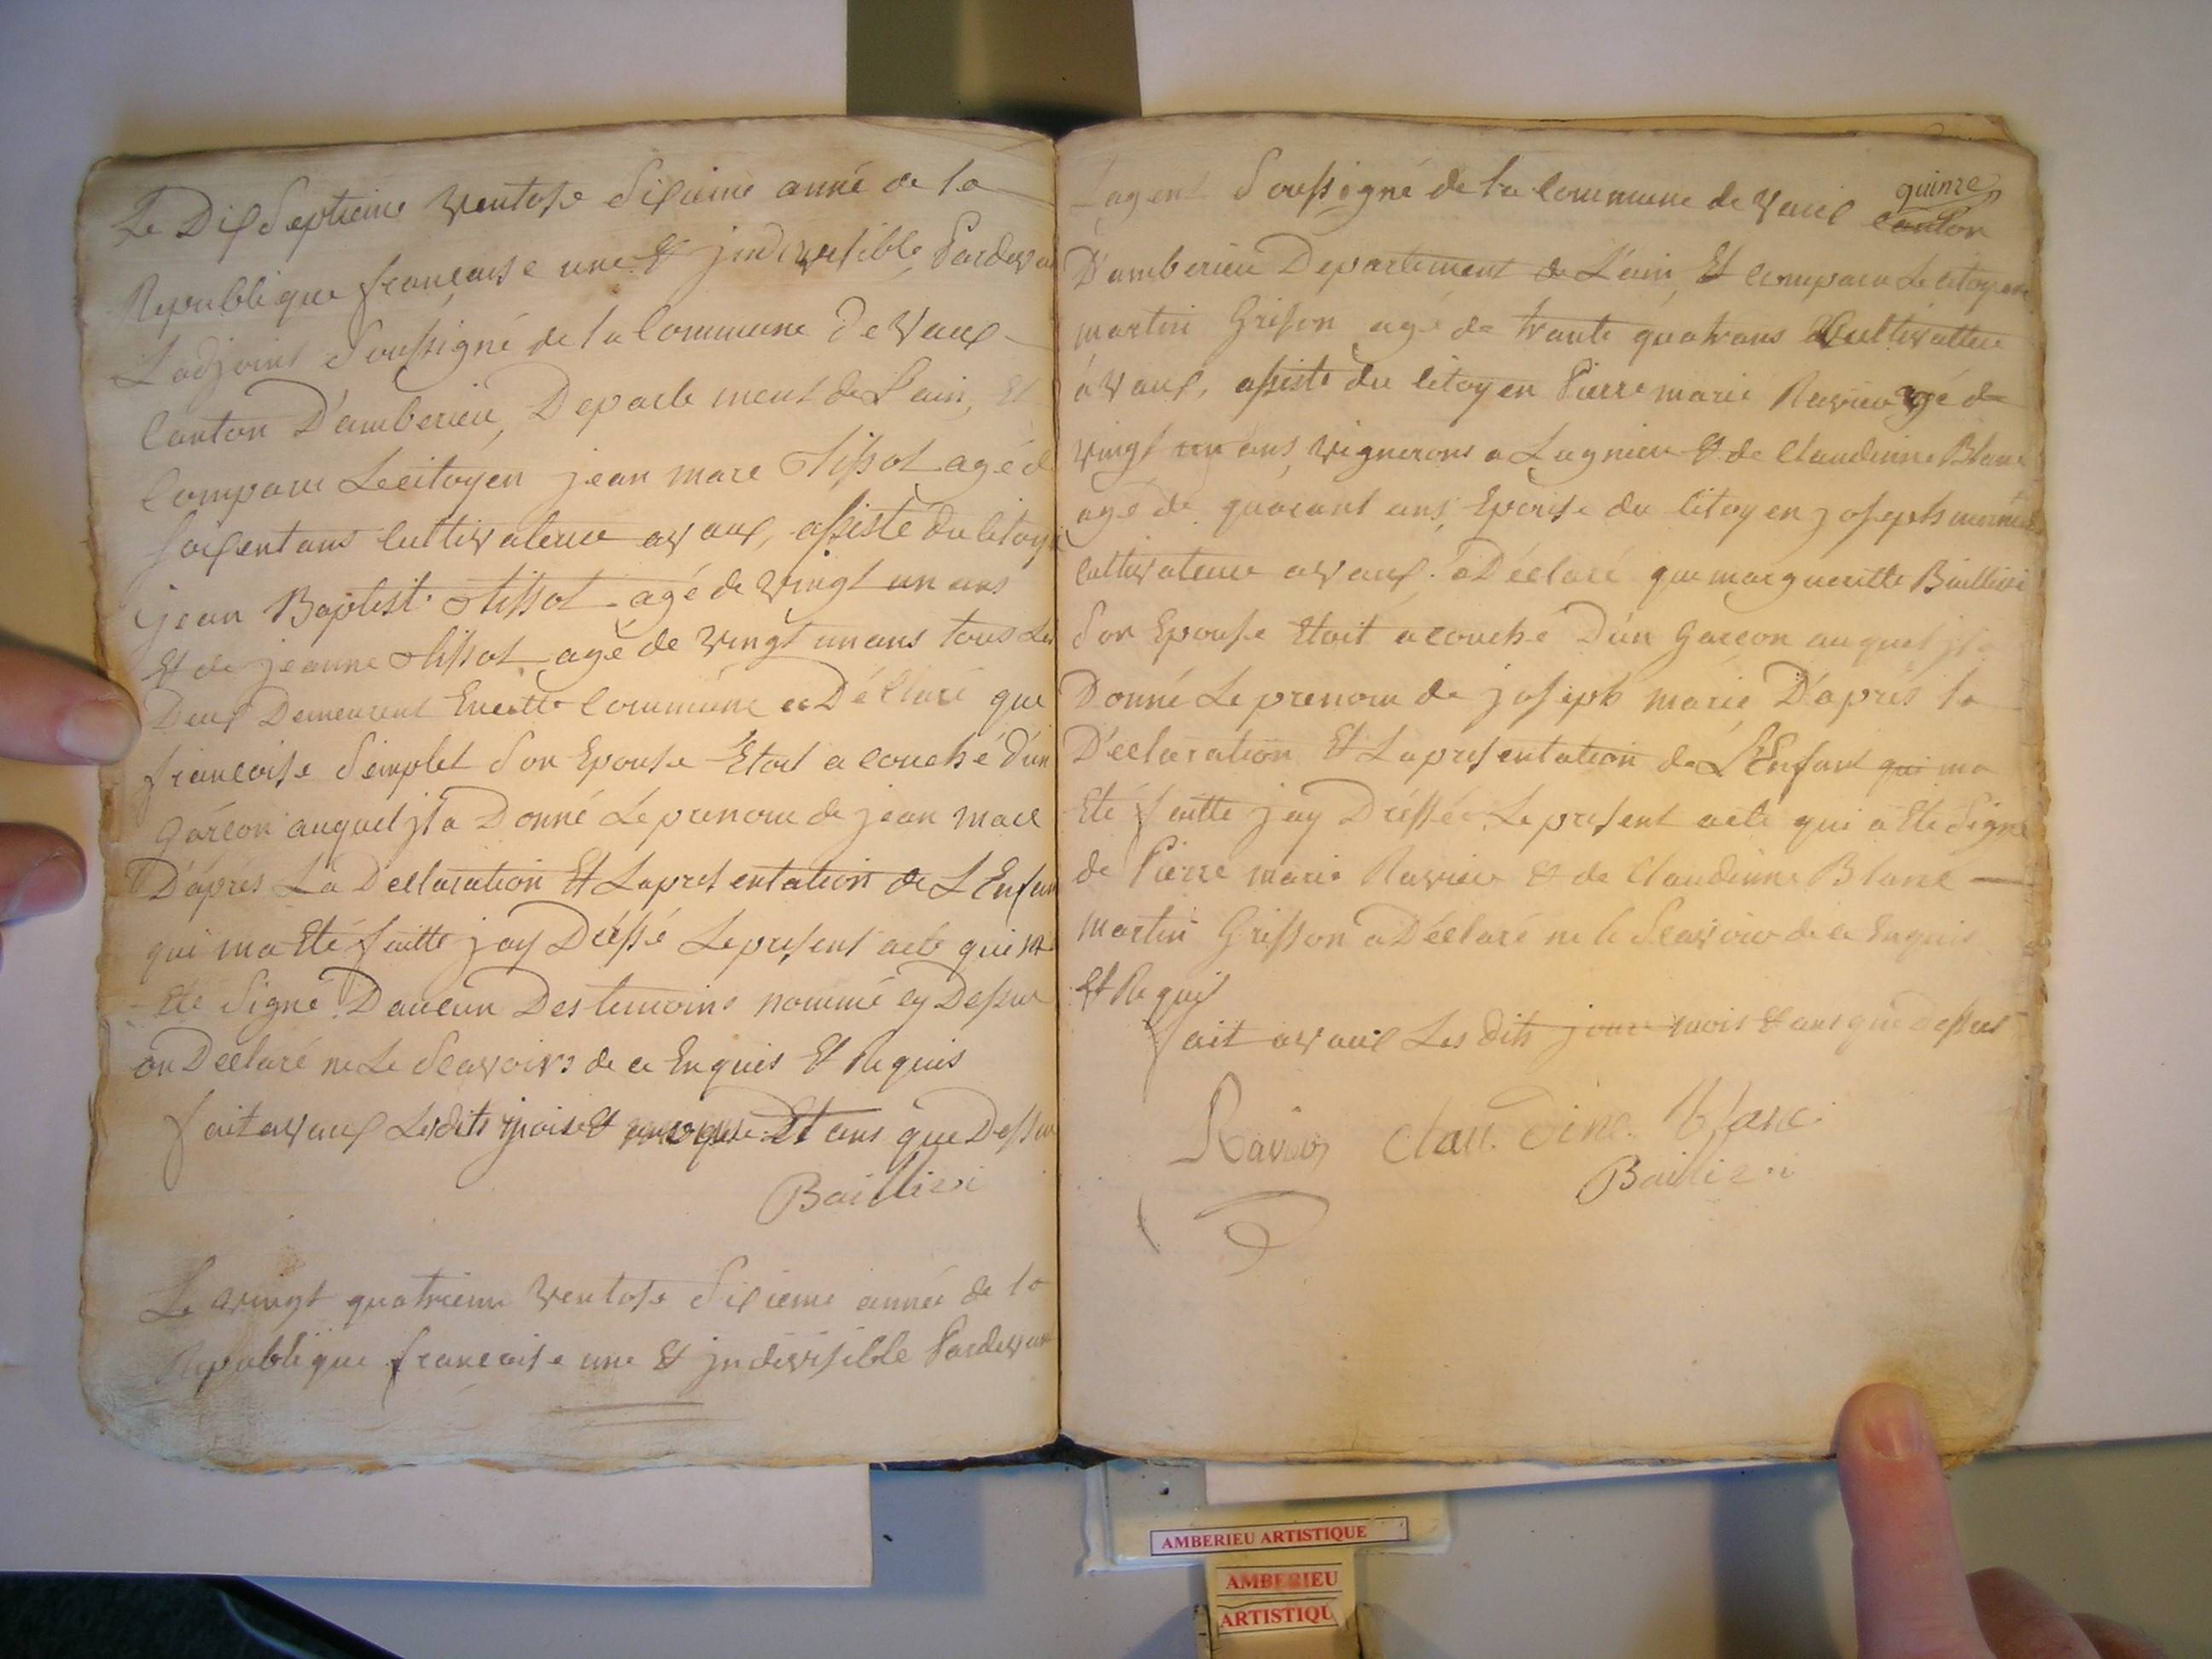 Le Dix Septieme Ventose Sixieme anné de la
Republique francaise une & jndivisible Pardevan
L'adjoint Soussigné de la Commune de Vaux
Canton D'amberieu, Departement de L'ain, Et
Comparu Lecitoyen jean marc tissot agé d
soixent ans Culttivateur a Vaux, assisté du Citoy
jean Baptiste tissot agé de vingt un ans
Et de jeanne tissot agé de vingt un ans tous Les
Deux Demeurent En cette Commune a Déclaré que
francoise Simplet Son Epouse Etoit acouché D'un
Garcon auquel jl a Donné Le prenom de jean Marc
D'aprés La Declaration Et La presentation de L'Enfan
qui ma Eté faitte jay Dréssé Le present acte qui na
Eté Signé D'aucun Des temoins nommé cy Dessu
on Declaré ne Le Scavoirs de ce Enquis Et Requis
fait a Vaux Lesdits mois & Et ans que Dessu
Baillivi
Le vingt quatrieme Ventose Sixieme année de la
Republique francaise une & jndivisible Pardevan
quinze
Lagent Soussigné de la Commune de Vaux Canton
D'amberieu Departement de L'ain, Et Comparu Le Citoyen
martin Grison agé de trante quatrans Culltivatteur
a Vaux, assisté du Citoyen Pierre marie Ravier agé de
vingt un ans, vignerons a Lagnieu & de Claudinne Blanc
agé de quarant ans, Epouse du Citoyen joseph
Culttivateur a Vaux, a Déclaré que margueritte Baillivi
Son Epouse Etoit acouché D'un Garcon auquel jl a
Donné Le prenom de joseph marie D'aprés la
Déclaration Et La presentation de L'Enfant qui ma
Eté faitte jay Dréssée Le present acte qui a Eté Signé
de Pierre marie Ravier & de Claudinne Blanc
martin Grisson a Déclaré ne le Scavoir de ce Enquis
Et Requis
fait a Vaux Les dits jour mois & ans que dessus
Ravier Clau dine blanc
Baillivi
AMBERIEU ARTISTIQUE
AMBERIEU
ARTISTIQU